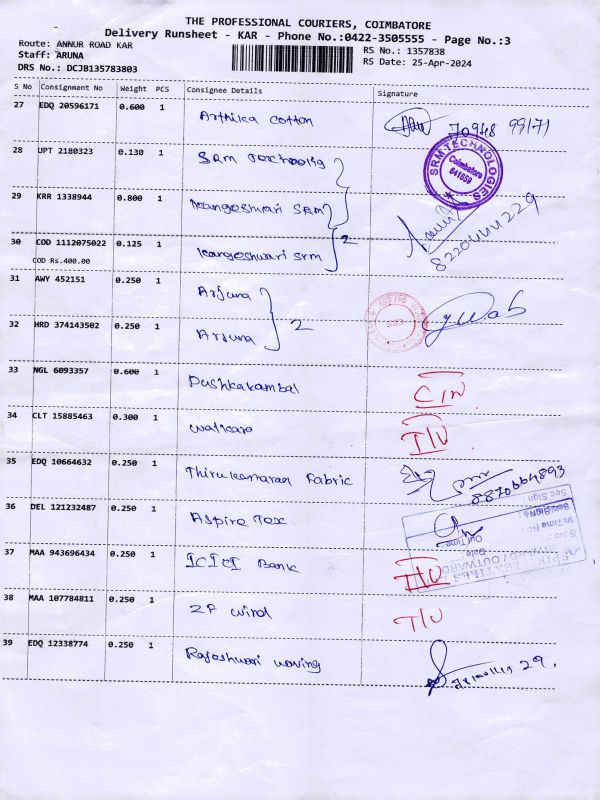 THE PROFESSIONAL COURIERS, COIMBATORE
Delivery Runsheet - KAR - Phone No.:0422-3505555 - Page No.:3
Route: ANNUR ROAD KAR
Staff: ARUNA
DRS No.: DCJB135783803
RS No.: 1357838
RS Date: 25-Apr-2024
S No Consignment No Weight PCS Consignee Details Signature
27 EDQ 20596171 0.600 1 Arthika cotton 70948 99171
28 UPT 2180323 0.130 1 SRM
SRM TECHNOLOGIES
Coimbatore
641059
29 KRR 1338944 0.800 1 Kangeshwari SRM
30 COD 1112075022 0.125 1 Kangeshwari SRM 2
8220444229
COD Rs.400.00
31 AWY 452151 0.250 1 Arjuna
32 HRD 374143502 0.250 1 Arjuna 2
33 NGL 6093357 0.600 1 Pushkarambal
34 CLT 15885463 0.300 1
35 EDQ 10664632 0.250 1 Thirukumaran Fabric
8870664893
36 DEL 121232487 0.250 1 Aspire Tex
37 MAA 943696434 0.250 1 ICICI Bank
38 MAA 107784811 0.250 1 ZF wind
39 EDQ 12338774 0.250 1 Rajeshwari waving